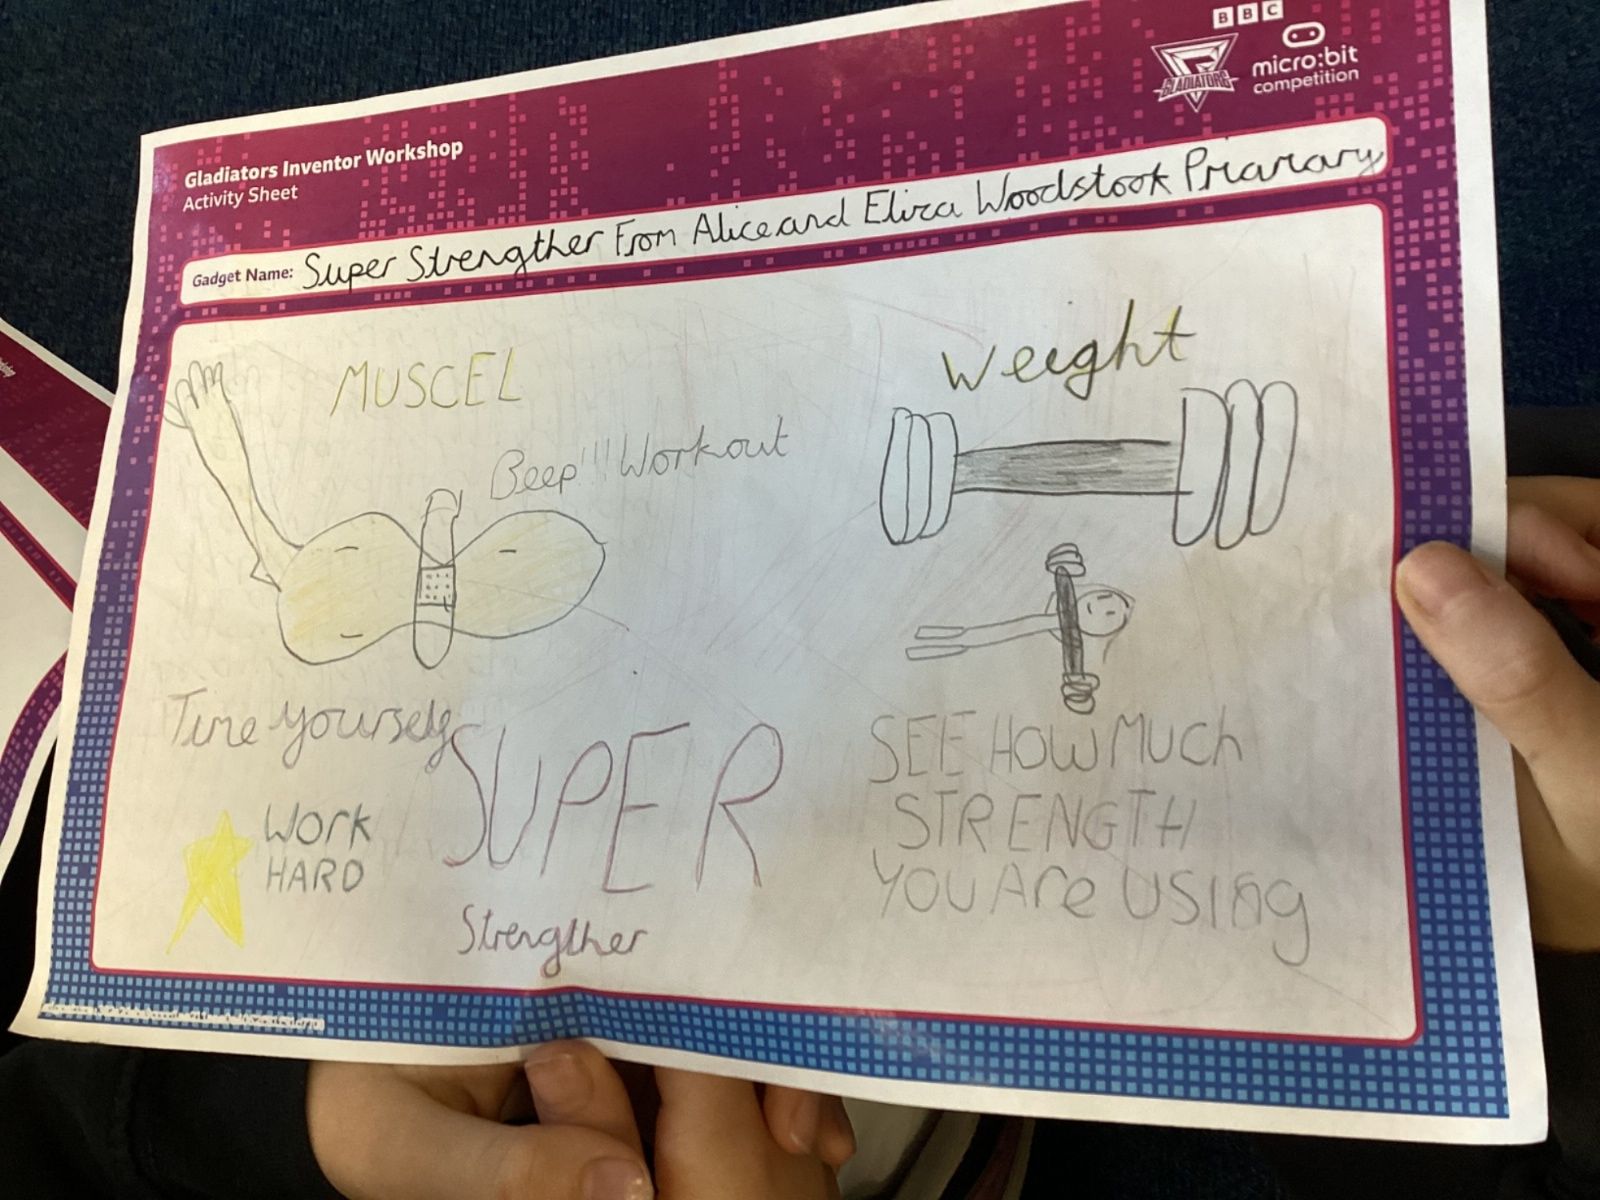 BBC
GLADIATORS
micro:bit
competition
Gladiators Inventor Workshop
Activity Sheet
Gadget Name: Super Strengther From Alice and Eliza Woodstook Priarary
MUSCEL
Weight
Beep!!! Workout
Time yourself
SUPER
Strengther
WORK
HARD
SEE HOW MUCh
STRENGTH
YOU Are USing